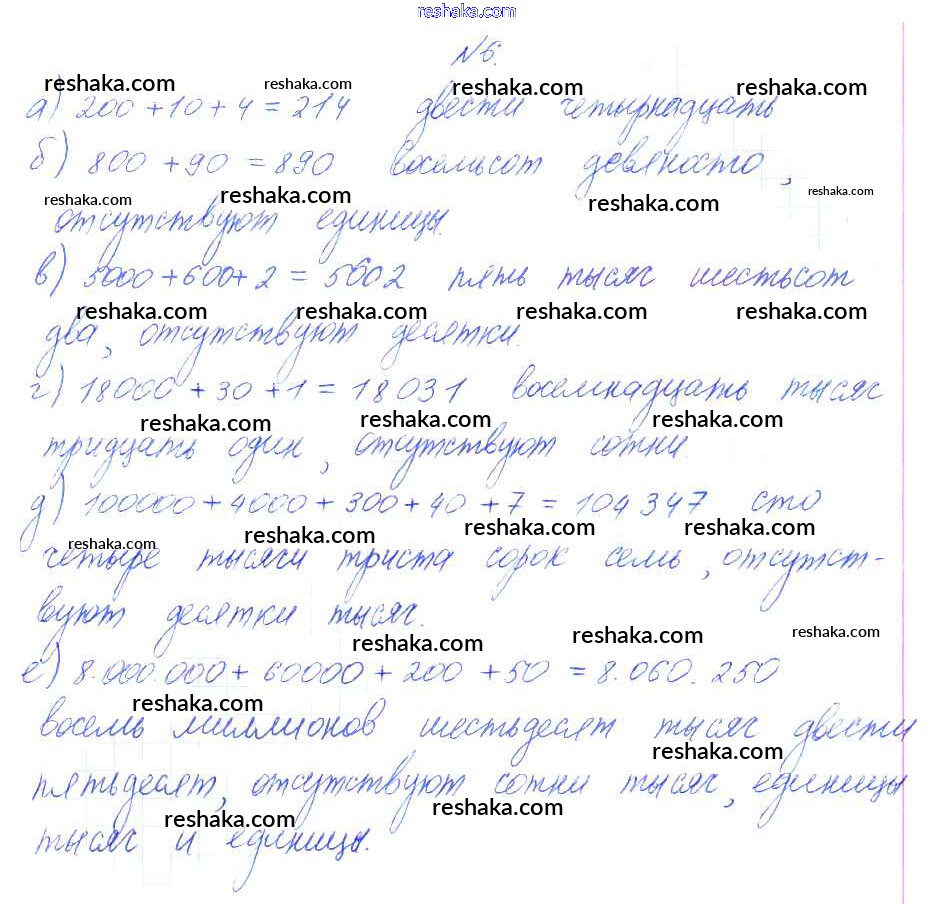 reshaka.com
№6.
reshaka.com reshaka.com reshaka.com reshaka.com
а) 200 + 10 + 4 = 214 двести четырнадцать
б) 800 + 90 = 890 восемьсот девяносто,
reshaka.com reshaka.com reshaka.com reshaka.com
отсутствуют единицы.
в) 5000 + 600 + 2 = 5602 пять тысяч шестьсот
reshaka.com reshaka.com reshaka.com reshaka.com
два, отсутствуют десятки.
г) 18000 + 30 + 1 = 18 031 восемнадцать тысяч
reshaka.com reshaka.com reshaka.com
тридцать один, отсутствуют сотни.
д) 100000 + 4000 + 300 + 40 + 7 = 104 347 сто
reshaka.com reshaka.com reshaka.com reshaka.com
четыре тысячи триста сорок семь, отсутст-
вуют десятки тысяч.
reshaka.com reshaka.com reshaka.com
е) 8.000.000 + 60000 + 200 + 50 = 8.060.250
reshaka.com
восемь миллионов шестьдесят тысяч двести
reshaka.com
пятьдесят, отсутствуют сотни тысяч, единицы
reshaka.com reshaka.com
тысяч и единицы.